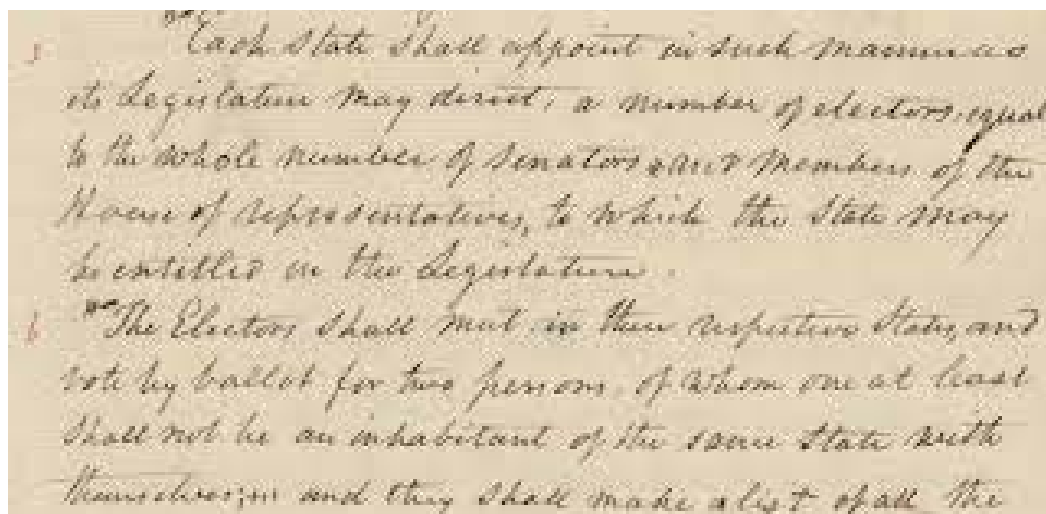 Each State shall appoint in such manner as
its Legislature may direct, a number of electors, equal
to the whole number of senators and members of the
House of representatives, to which the State may
be entitled in the Legislature.
The Electors shall meet in their respective States, and
vote by ballot for two persons, of whom one at least
shall not be an inhabitant of the same State with
themselves; and they shall make a list of all the